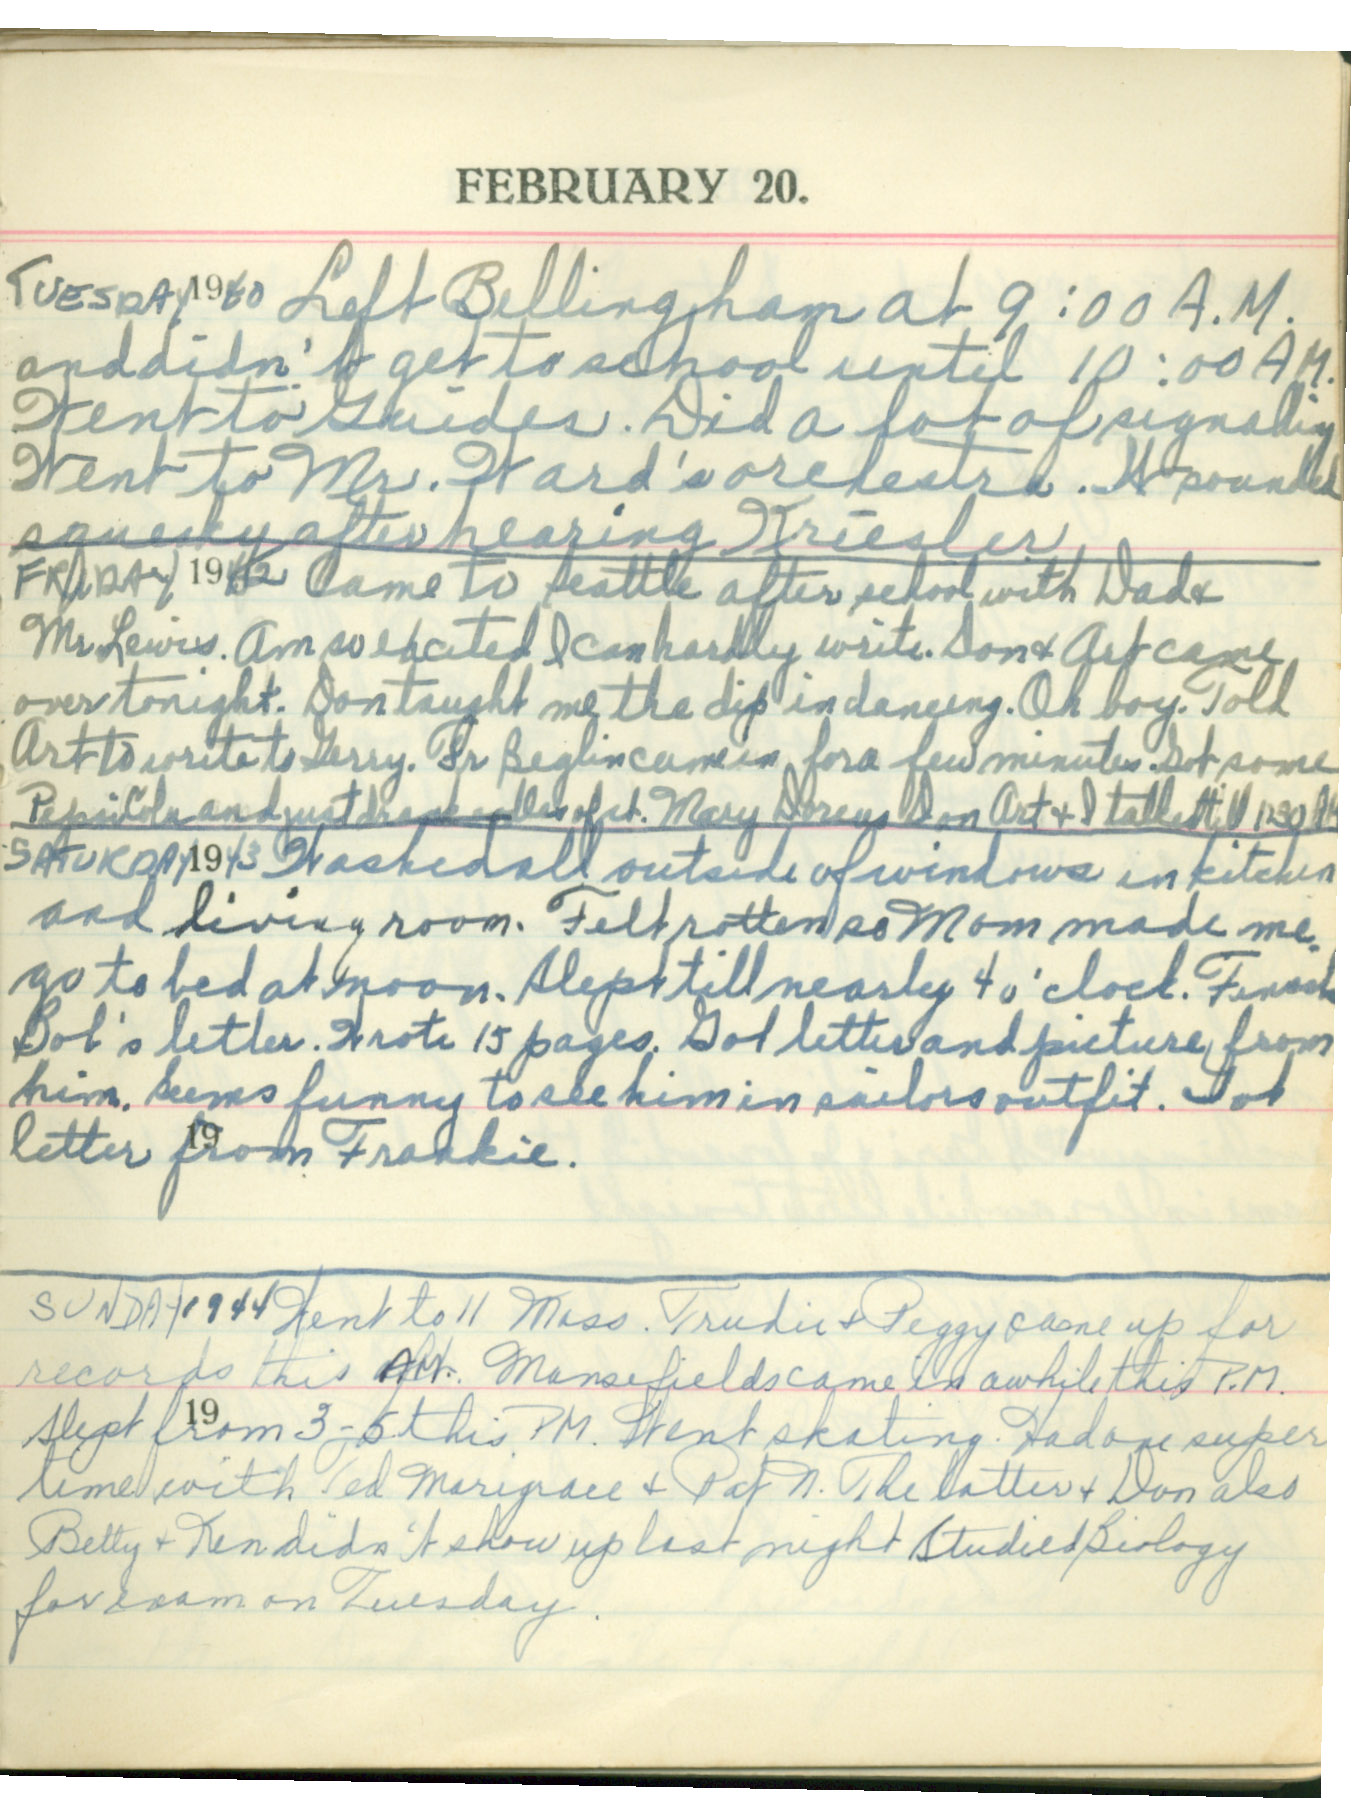 FEBRUARY 20.
TUESDAY 1940 Left Bellingham at 9:00 A.M.
and didn't get to school until 10:00 AM.
Went to Guides. Did a lot of signaling
Went to Mr. Ward's orchestra. It sounded
squeeky after hearing Kriesler
FRIDAY 1942 Came to Seattle after school with Dad &
Mr Lewis. Am so excited I can hardly write. Don & Art came
over tonight. Don taught me the dip in dancing. Oh boy. Told
Art to write to Gerry. Fr Beglin came in for a few minutes. Got some
Pepsi Cola and just drank of it. Mary Doreus Don Art & I talked till 1:30 AM
SATURDAY 1943 Washed all outside of windows in kitchen
and living room. Felt rotten so Mom made me
go to bed at noon. Slept till nearly 4 o'clock. Finish
Bob's letter. Wrote 15 pages. Got letter and picture from
him. Seems funny to see him in sailors outfit. Got
19
letter from Frankie.
SUNDAY 1944 Went to 11 Mass. Trudie & Peggy came up for
records this Aft. Mansefields came in awhile this P.M.
19
Slept from 3-5 this P.M. Went skating. Had one super
time with Ted Marigrace & Pat N. The latter & Don also
Betty & Ken didn't show up last night Studied Biology
for exam on Tuesday.